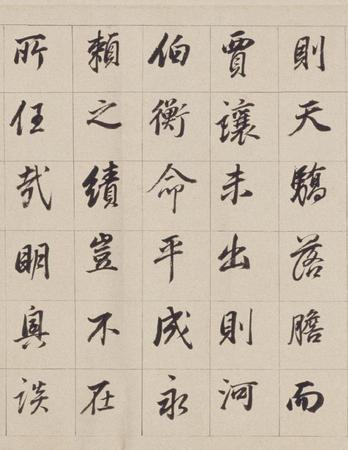 則天驕落膽而
賈讓未出則河
伯衡命平成永
賴之績豈不在
所任哉明興談